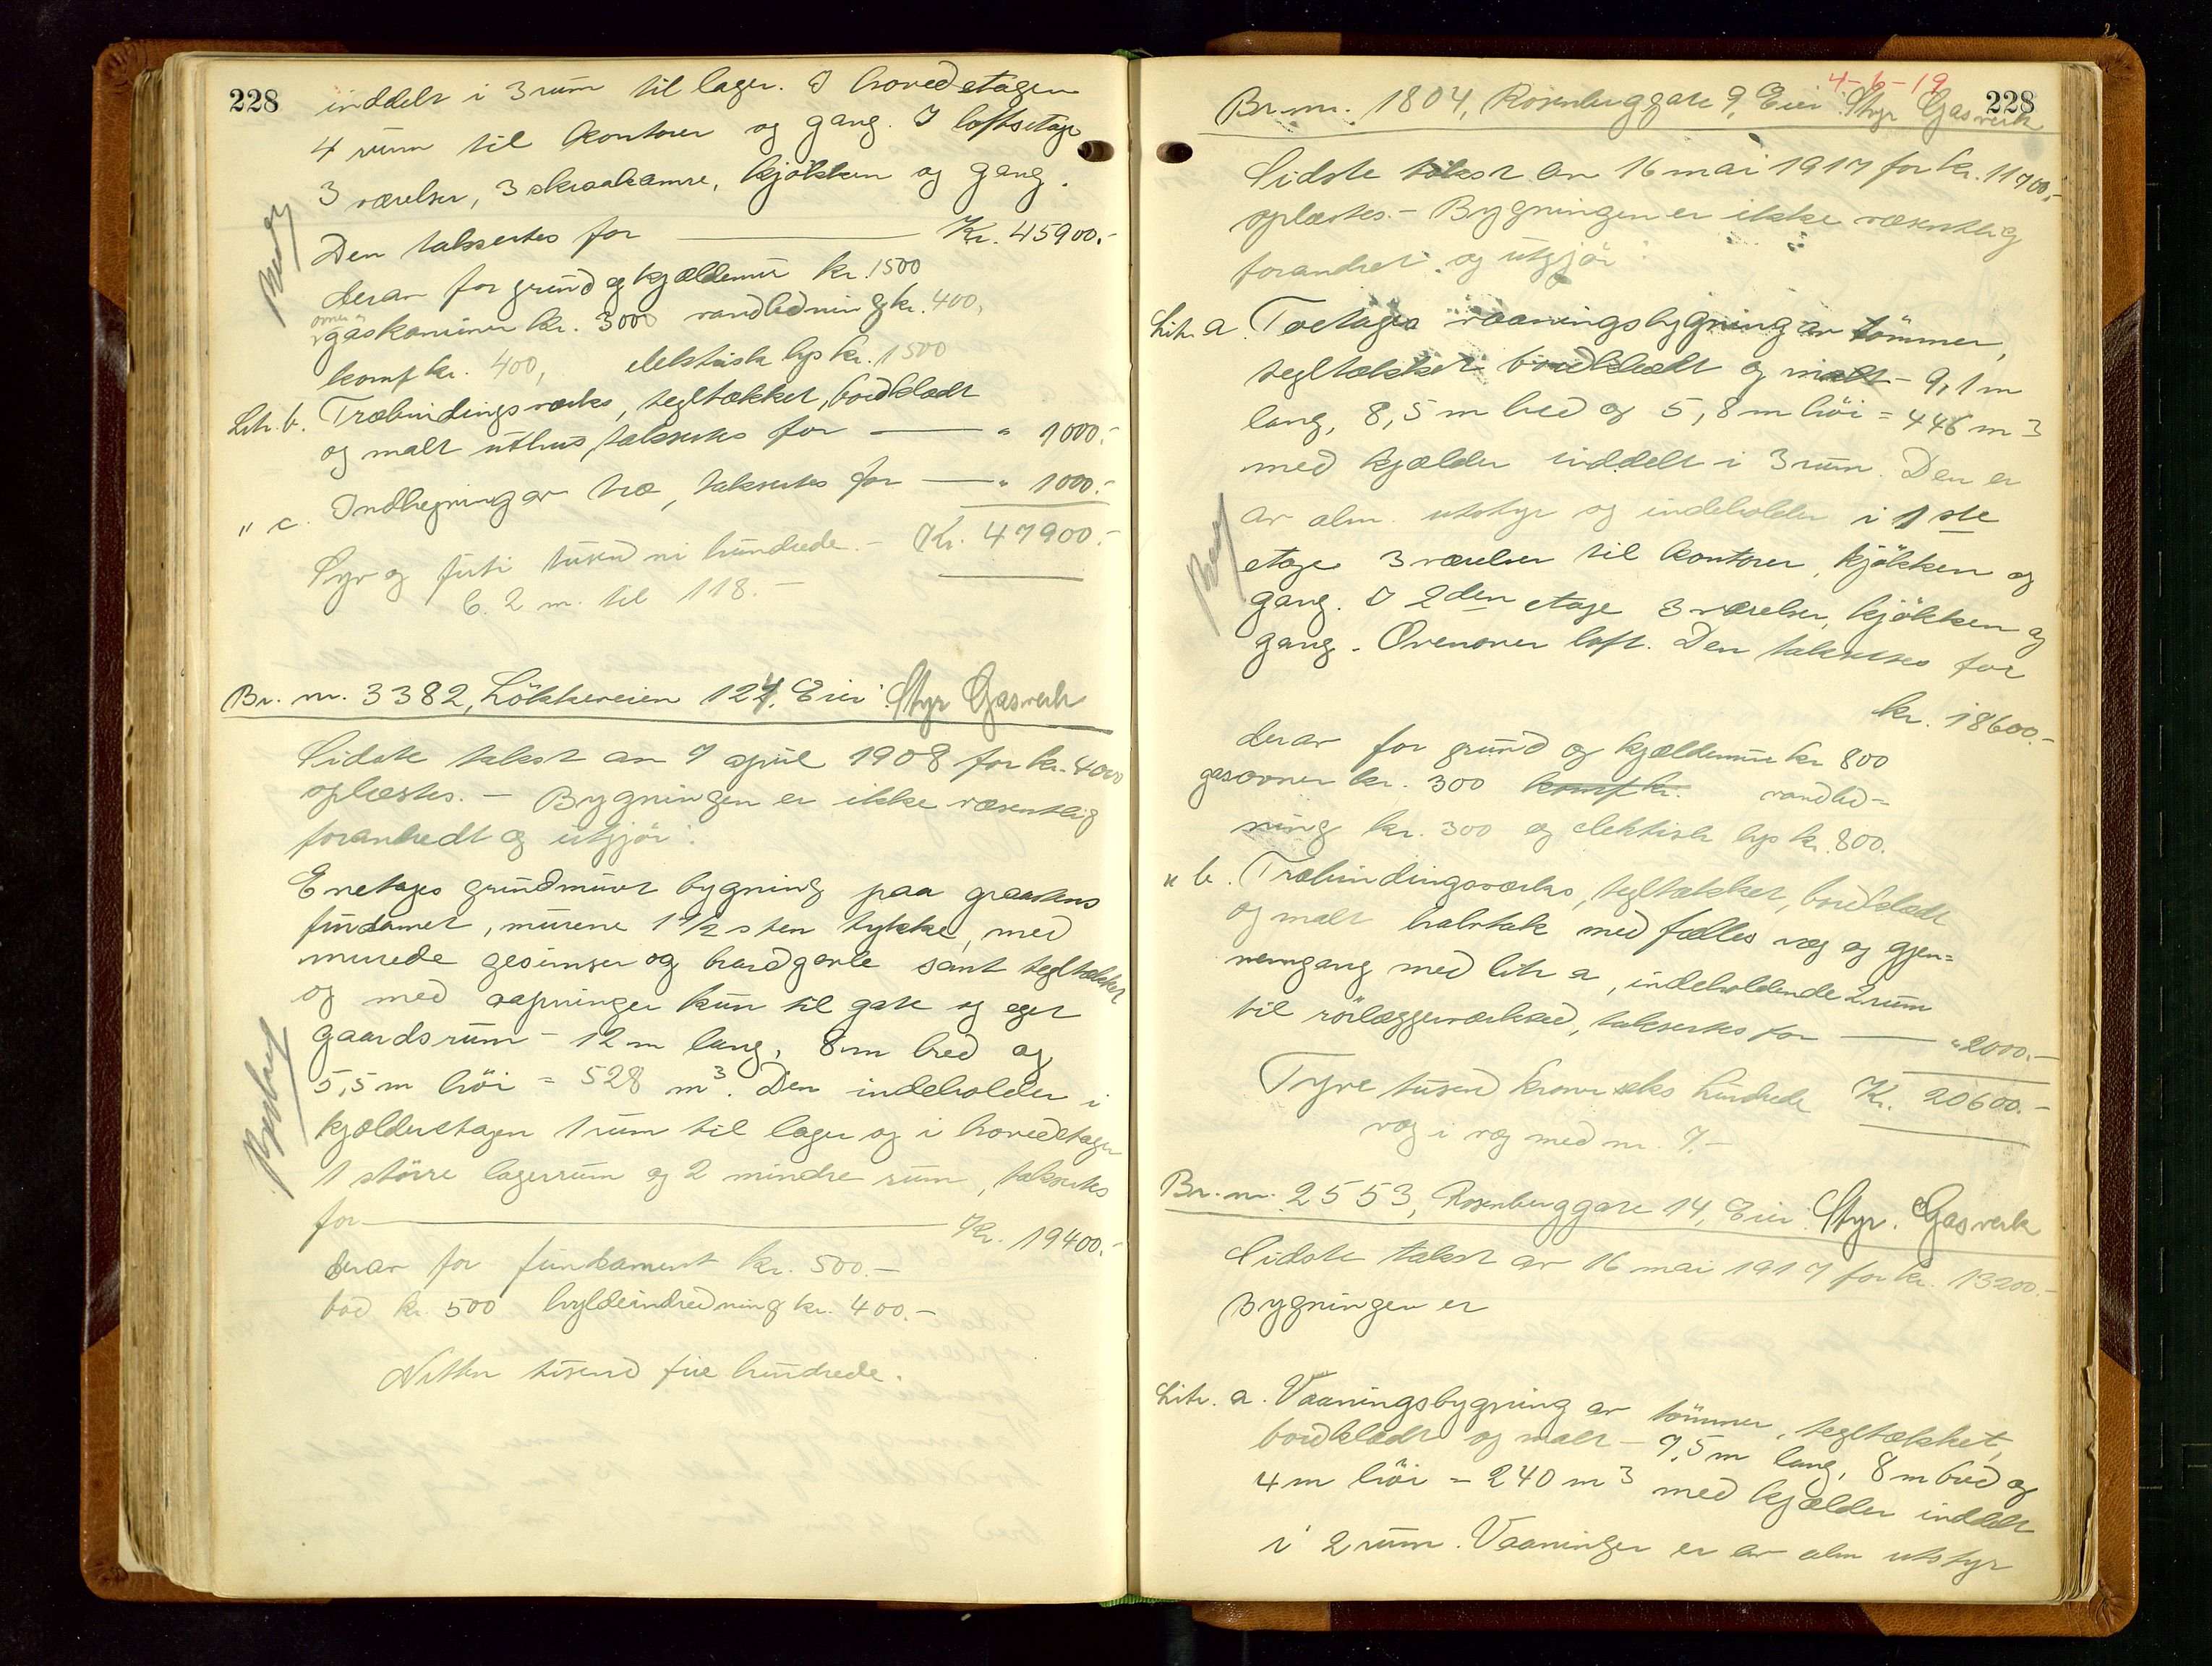 228
inddelt i 3 rum til lager. I hovedetagen
4 rum til kontorer og gang. I loftsetage
3 værelser, 3 skraakamre, kjøkken og gang.
Den takseres for Kr. 45900.-
derav for grund og kjældermur kr. 1500
ovner og
gaskaminer kr. 3000 vandledning kr. 400,
komf kr. 400, elektrisk lys kr. 1500
Litr. b. Træbindingsverks, tegltækket, bordklædt
og malt uthus, takseres for " 1000.-
" c. Indhegning av træ, takseres for " 1000.-
Kr. 47900.-
Syv og førti tusend ni hundrede.-
6.2 m. til 118.-
Br. nr. 3382, Løkkeveien 124, Eier: Stgr Gasverk
Sidste takst av 7 april 1908 for kr. 4000
oplæstes. - Bygningen er ikke væsentlig
forandredt og utgjør:
Enetages grundmurt bygning paa graastens
fundamet, murene 1 1/2 sten tykke, med
murede gesimser og brandgavle samt tegltækket
og med aapninger kun til gate og eget
gaardsrum - 12 m lang, 8 m bred og
5,5 m høi = 528 m3. Den indeholder i
kjælderetagen 1 rum til lager og i hovedetagen
1 større lagerrum og 2 mindre rum, takseres
for Kr. 19400.-
derav for fundament kr. 500.-
bod kr. 500 hyldeindredning kr. 400.-
Nitten tusend fire hundrede.
4-6-19
228
Br. nr. 1804, Rosenberggate 9, Eier Stgr Gasverk
Sidste takst av 16 mai 1917 for kr. 11700.-
oplæstes. - Bygningen er ikke væsentlig
forandret og utgjør:
Litr. a. Toetages vaaningsbygning av tømmer,
tegltækket bordklædt og malt - 9,1 m
lang, 8,5 m bred og 5,8 m høi = 446 m3
med kjælder inddelt i 3 rum. Den er
av alm. utstyr og indeholder i 1ste
etage 3 værelser til kontorer, kjøkken og
gang. I 2den etage 3 værelser, kjøkken og
gang. Ovenover loft. Den takseres for
kr. 18600.-
derav for grund og kjældermur kr 800
gasovner kr. 300 komf kr. vandled=
ning kr. 300 og elektrisk lys kr. 800.
" b. Træbindingsværks, tegltækket, bordklædt
og malt halvtak med fælles væg og gjen=
nemgang med litr a, indeholdende 2 rum
til rørlæggerværksted, takseres for " 2000.-
Kr. 20600.-
Tyve tusend kroner seks hundrede
væg i væg med nr. 7.-
Br. nr. 2553, Rosenberggate 14, Eier: Stgr. Gasverk
Sidste takst av 16 mai 1917 for kr. 13200.-
Bygningen er
Litr. a. Vaaningsbygning av tømmer, tegltækket,
bordklædt og malt - 7,5 m lang, 8 m bred og
4 m høi = 240 m3 med kjælder inddelt
i 2 rum. Vaaningen er av alm utstyr